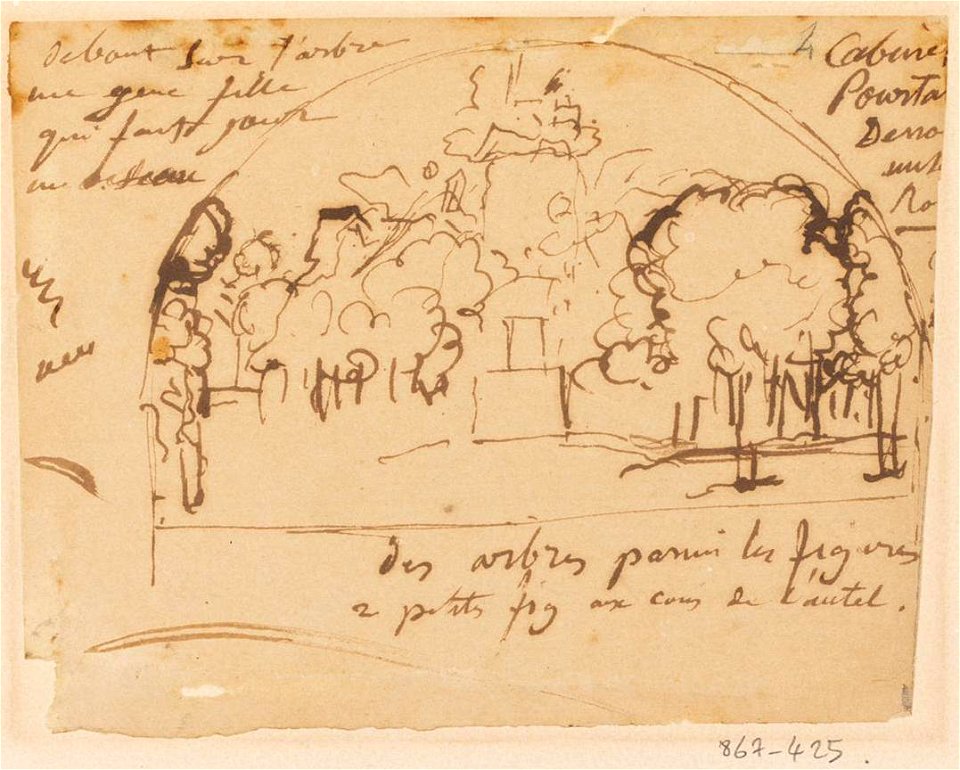 debout sur l'arbre
une gene fille
qui fait pour
un oiseau
4
Cabine
Pourta
Desso
Ro
des arbres parmi les figures
2 petits fig aux coins de l'autel.
867-425